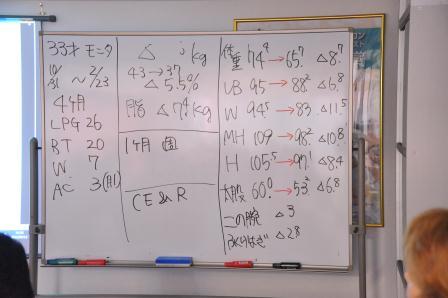 33才 モニタ
10/31 ~ 2/23
4ヶ月
LPG 26
RT 20
W 7
AC 3(月1)
△ kg
43→37
△5.5%
脂 △7.4kg
1ヶ月 固
CE & R
体重 74.9→65.7 △8.7
UB 95→88.2 △6.8
W 94.5→83 △11.5
MH 109→98.2 △10.8
H 105.5→97.1 △8.4
太股 60.0→53.2 △6.8
二の腕 △3
ふくらはぎ △2.8